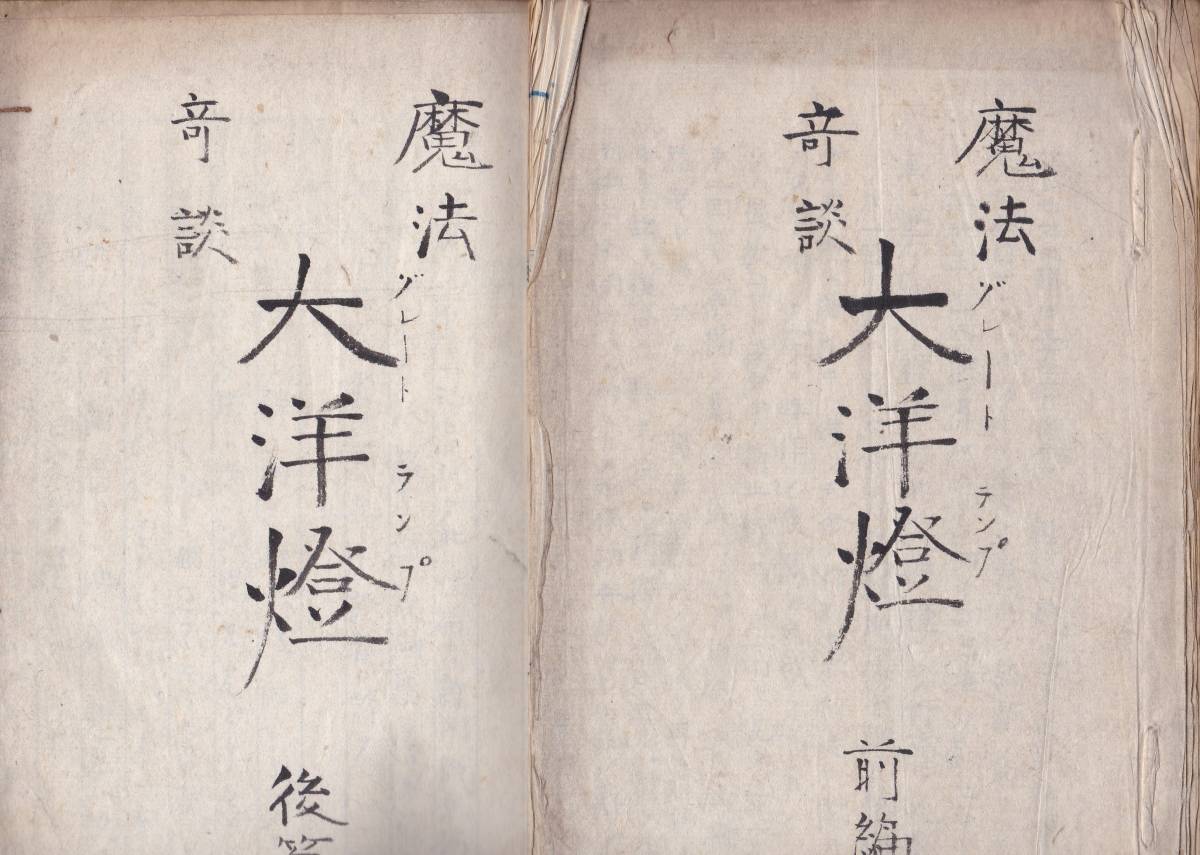 魔法
グレート ランプ
大洋燈 前編
竒談
魔法
グレート ランプ
大洋燈 後
竒談